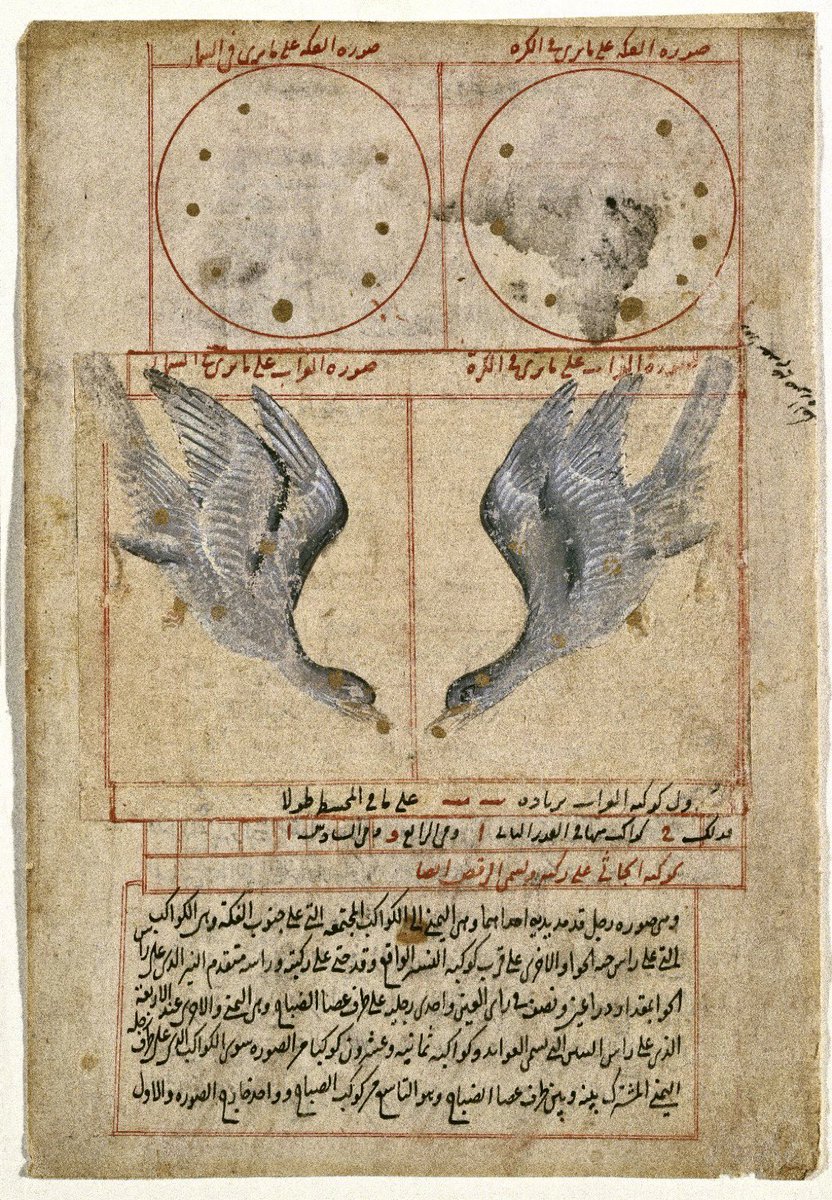 صوره الفكه على ما يرى فى الكره
صوره الفكه على ما يرى فى السما
صورة الغراب على ما يرى فى الكرة
صوره الغراب على ما يرى فى السما
كوكبه الغراب بزياده على ما فى المجسطى طولا
كواكب منها فى القدر الثالث ا وفى الرابع و وفى السادس ا
كوكبه الجاثى على ركبته ويسمى الرقص ايضا
وهى صوره رجل قد مد يديه احداهما وهى اليمنى الى الكواكب المجتمعه التى على جنوب الفكة وهى الكواكب
التى على راس حية الحوا والاخرى على قرب كوكبه النسر الواقع وقد جثى على ركبته وراسه متقدم النير الذى على راس
الحوا بمقدار ذراعين ونصف فى راى العين واحدى رجليه على طرف عصا الضياح وهى اليمنى والاخرى عند الاربعة
الذى على راس التنين التى تسمى العوايد وكواكبه ثمانية وعشرون كوكبا من الصوره سوى الكواكب الذى على طرف رجله
اليمنى المشترك بينه وبين طرف عصا الضياح وهو التاسع من كوكبة الضياح وواحد خارج الصوره والاول